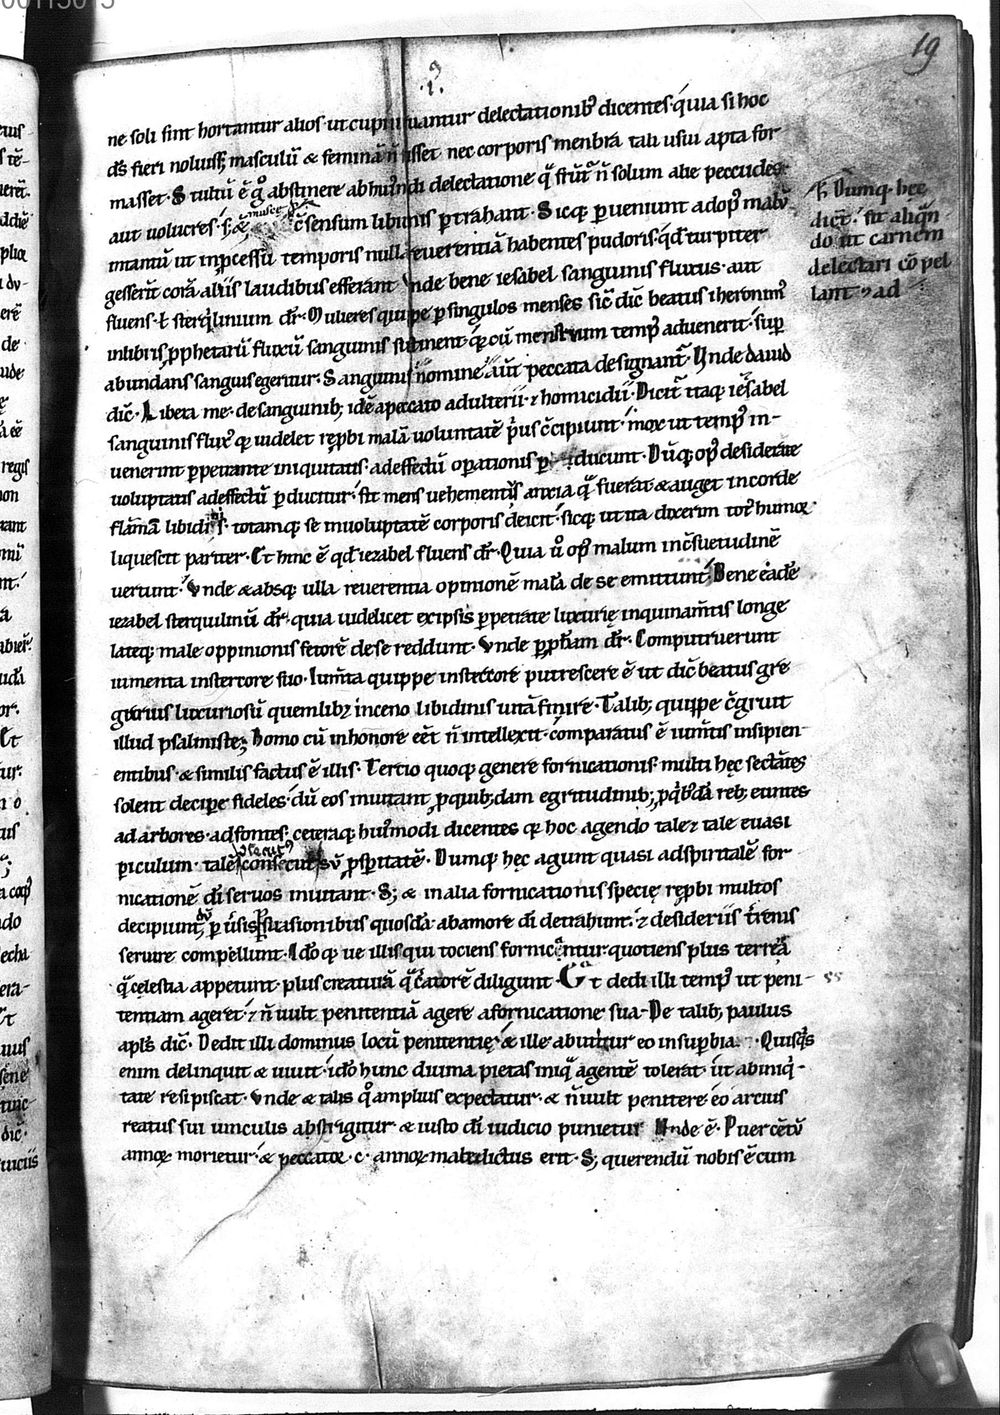 19
.i.
ne soli sint hortantur alios· ut cupri uantur delectationib⁹ dicentes· quia si hoc
ds̄ fieri noluiss; masculū & feminā n̄ fecisset nec corporis menbra tali usui apta for
masset· Stultū ē g° abstinere ab hui⁹ndi delectatione q̄ sūt n̄ solum alie peccudes·
aut uolucres· s; & c̄sensum libidinis ptrahant· Sicq; pueniunt ad op⁹ malū
intantū ut inpcessū temporis nullā reuerentiā habentes pudoris· qd̄ turpiter
gesserīt corā aliis laudibus efferant Vnde bene iesabel sanguinis fluxus· aut
fluens· ł sterq̄linium dr̄· Mulieres quippe p singulos menses sic̄ dic̄ beatus iheronim⁹
inlibris pphetarū fluxū sanguinis sustinent· q̄ cū menstruum temp⁹ aduenerit· sup
abundans sanguis egeritur· Sanguinis nomine aūt peccata designant̄· Vnde dauid
dic̄· Libera me· de sanguinib; idē a peccato adulterii· & homicidii· Dicit̄ itaq; iesabel
sanguinis flux⁹ q̄ uidelet rep̄bi malā uoluntatē p̄us c̄cipiunt· mox ut temp⁹ in-
uenerint ppetrante iniquitatis· adeffectū opationis p ducunt· Dūq; op⁹ desiderate
uoluptatis adeffectū pducitur· fit mens uehementis anxia q̄ fuerat & auget in corde
flāmā libidinis· totamq; se in uoluptatē corporis deicit· sicq; ut ita dixerim tot⁹ humor
liquescit pariter· Et hinc ē qd̄ iezabel fluens dr̄· Quia ū op⁹ malum inc̄suetudinē
uertunt· Vnde & absq; ulla reuerentia opinionē malā de se emittunt· Bene eadē
iezabel sterquiliniū dr̄· quia uidelicet ex ipsis ppetrate luxurię inquinam̄tis longe
lateq; male oppinionis fetorē de se reddunt· Vnde p pph̄am dr̄· Computruerunt
iumenta in stercore suo· Ium̄ta quippe in stercore putrescere ē ut dic̄ beatus gre
gorius luxuriosū quemlib; inceno libidinis uitā finire· Talib; quippe c̄gruit
illud psalmiste; homo cū inhonore eēt n̄ intellexit· comparatus ē ium̄tis insipien-
entibus· & similis factus ē illis· Tertio quoq; genere fornicationis· multi hęc sectātes
solent decipe fideles· dū eos mittant p quib;dam egritudinib; p q̄b⁹dā reb; euntes
ad arbores· ad fontes· ceteraq; hui⁹modi dicentes q̄ hoc agendo tale & tale euasi
piculum· talē consecut sū psp̄itatē· Dumq; hęc agunt quasi ad spiritalē for
nicationē di seruos mittant· S; & in alia fornicationis specię rep̄bi multos
decipiunt; dū p uīsis psuasionibus quosdā· ab amore di detrahunt· & desideriis t̄renis
seruire compellunt· Ido q̄ ue illis qui tociens fornicantur quotiens plus terreā
q̄ celestia appetunt· plus creaturā q̄ c̄atorē diligunt· Et dedi illi temp⁹ ut peni-
tentiam ageret· & n̄ uult penitentiā agere a fornicatione sua- De talib; paulus
apls̄ dic̄· Dedit illi dominus locū penitentię· & ille abutitur eo in supbia· Quisq̄s
enim delinquit & uiuit· ido hunc diuina pietas iniq̄ agentē tolerat· ut ab iniq̄-
tate resipiscat· Vnde & talis q° amplius expectatur· & n̄ uult penitere eo arcius
reatus sui uinculis abstrigitur & iusto di iudicio punietur Vnde ē· Puer cētū
annor morietur· & peccator· c· annor maledictus erit· S; querendū nobis ē cum
Dumq· hec
dict· sit aliqn
do ut carnem
delectari cō pel
lant ad